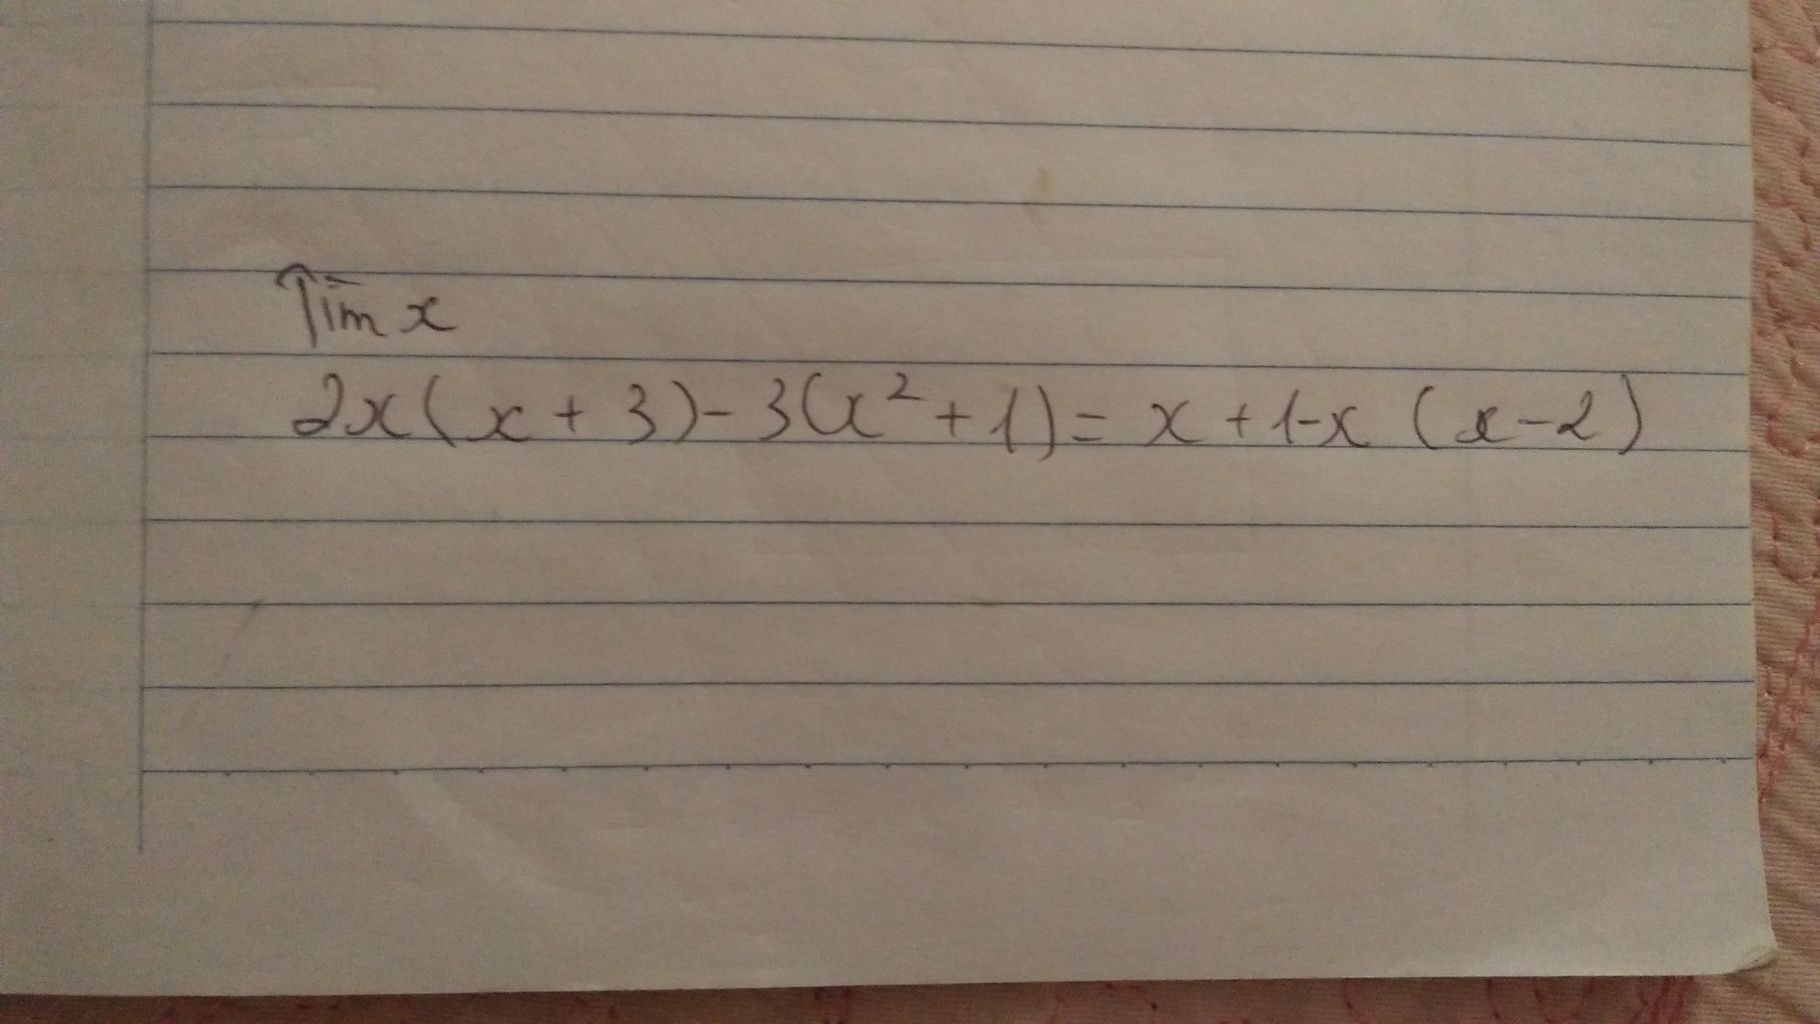 Tìm x
2x(x+3)-3(x²+1)=x+1-x(x-2)